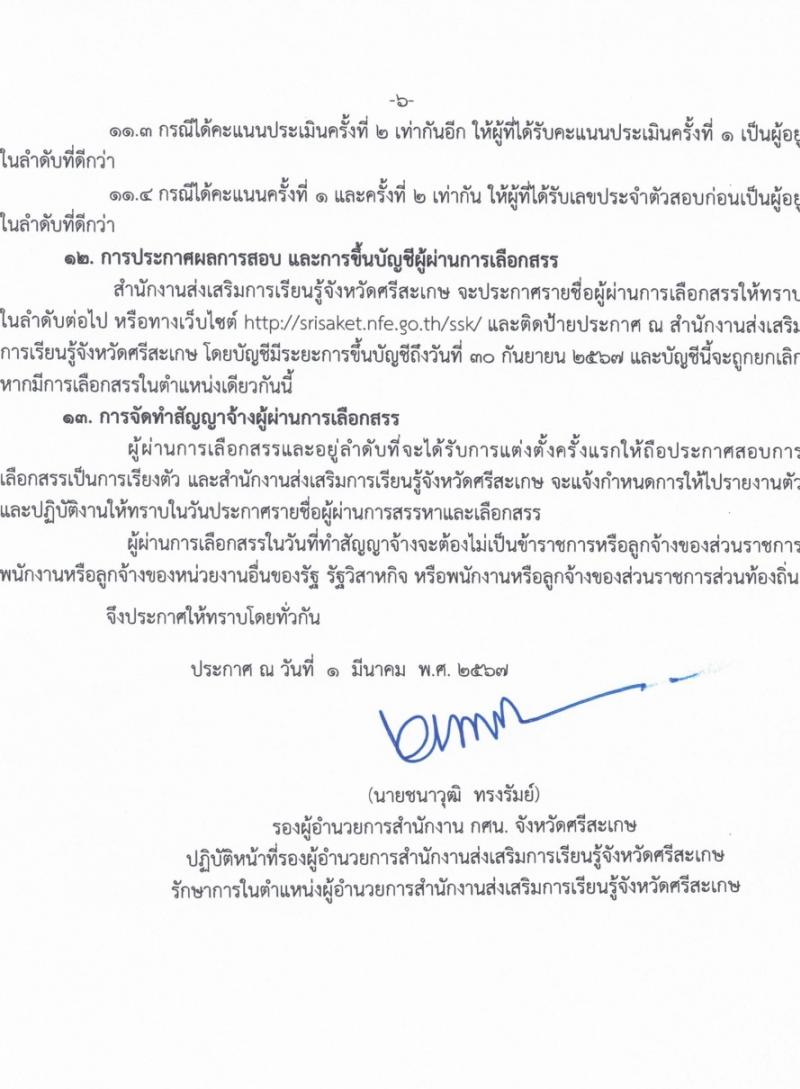 -๖-
๑๑.๓ กรณีได้คะแนนประเมินครั้งที่ ๒ เท่ากันอีก ให้ผู้ที่ได้รับคะแนนประเมินครั้งที่ ๑ เป็นผู้อยู
ในลำดับที่ดีกว่า
๑๑.๔ กรณีได้คะแนนครั้งที่ ๑ และครั้งที่ ๒ เท่ากัน ให้ผู้ที่ได้รับเลขประจำตัวสอบก่อนเป็นผู้อยู
ในลำดับที่ดีกว่า
๑๒. การประกาศผลการสอบ และการขึ้นบัญชีผู้ผ่านการเลือกสรร
สำนักงานส่งเสริมการเรียนรู้จังหวัดศรีสะเกษ จะประกาศรายชื่อผู้ผ่านการเลือกสรรให้ทราบ
ในลำดับต่อไป หรือทางเว็บไซต์ http://srisaket.nfe.go.th/ssk/ และติดป้ายประกาศ ณ สำนักงานส่งเสริม
การเรียนรู้จังหวัดศรีสะเกษ โดยบัญชีมีระยะการขึ้นบัญชีถึงวันที่ ๓๐ กันยายน ๒๕๖๗ และบัญชีนี้จะถูกยกเลิก
หากมีการเลือกสรรในตำแหน่งเดียวกันนี้
๑๓. การจัดทำสัญญาจ้างผู้ผ่านการเลือกสรร
ผู้ผ่านการเลือกสรรและอยู่ลำดับที่จะได้รับการแต่งตั้งครั้งแรกให้ถือประกาศสอบการ
เลือกสรรเป็นการเรียงตัว และสำนักงานส่งเสริมการเรียนรู้จังหวัดศรีสะเกษ จะแจ้งกำหนดการให้ไปรายงานตัว
และปฏิบัติงานให้ทราบในวันประกาศรายชื่อผู้ผ่านการสรรหาและเลือกสรร
ผู้ผ่านการเลือกสรรในวันที่ทำสัญญาจ้างจะต้องไม่เป็นข้าราชการหรือลูกจ้างของส่วนราชการ
พนักงานหรือลูกจ้างของหน่วยงานอื่นของรัฐ รัฐวิสาหกิจ หรือพนักงานหรือลูกจ้างของส่วนราชการส่วนท้องถิ่น
จึงประกาศให้ทราบโดยทั่วกัน
ประกาศ ณ วันที่ ๑ มีนาคม พ.ศ. ๒๕๖๗
(นายชนาวุฒิ ทรงรัมย์)
รองผู้อำนวยการสำนักงาน กศน. จังหวัดศรีสะเกษ
ปฏิบัติหน้าที่รองผู้อำนวยการสำนักงานส่งเสริมการเรียนรู้จังหวัดศรีสะเกษ
รักษาการในตำแหน่งผู้อำนวยการสำนักงานส่งเสริมการเรียนรู้จังหวัดศรีสะเกษ